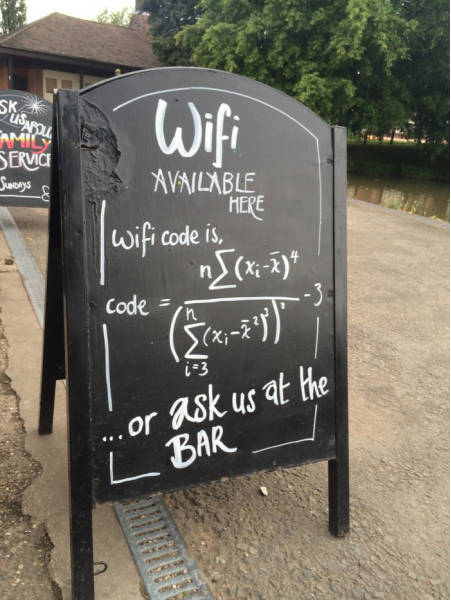 SK
US ABOU
FAMILY
SERVICE
SUNDAYS
Wifi
AVAILABLE
HERE
Wifi code is,
code = n∑(xᵢ-x̄)⁴ / (ⁿ∑ᵢ₌₃(xᵢ-x̄²)³)² - 3
...or ask us at the
BAR